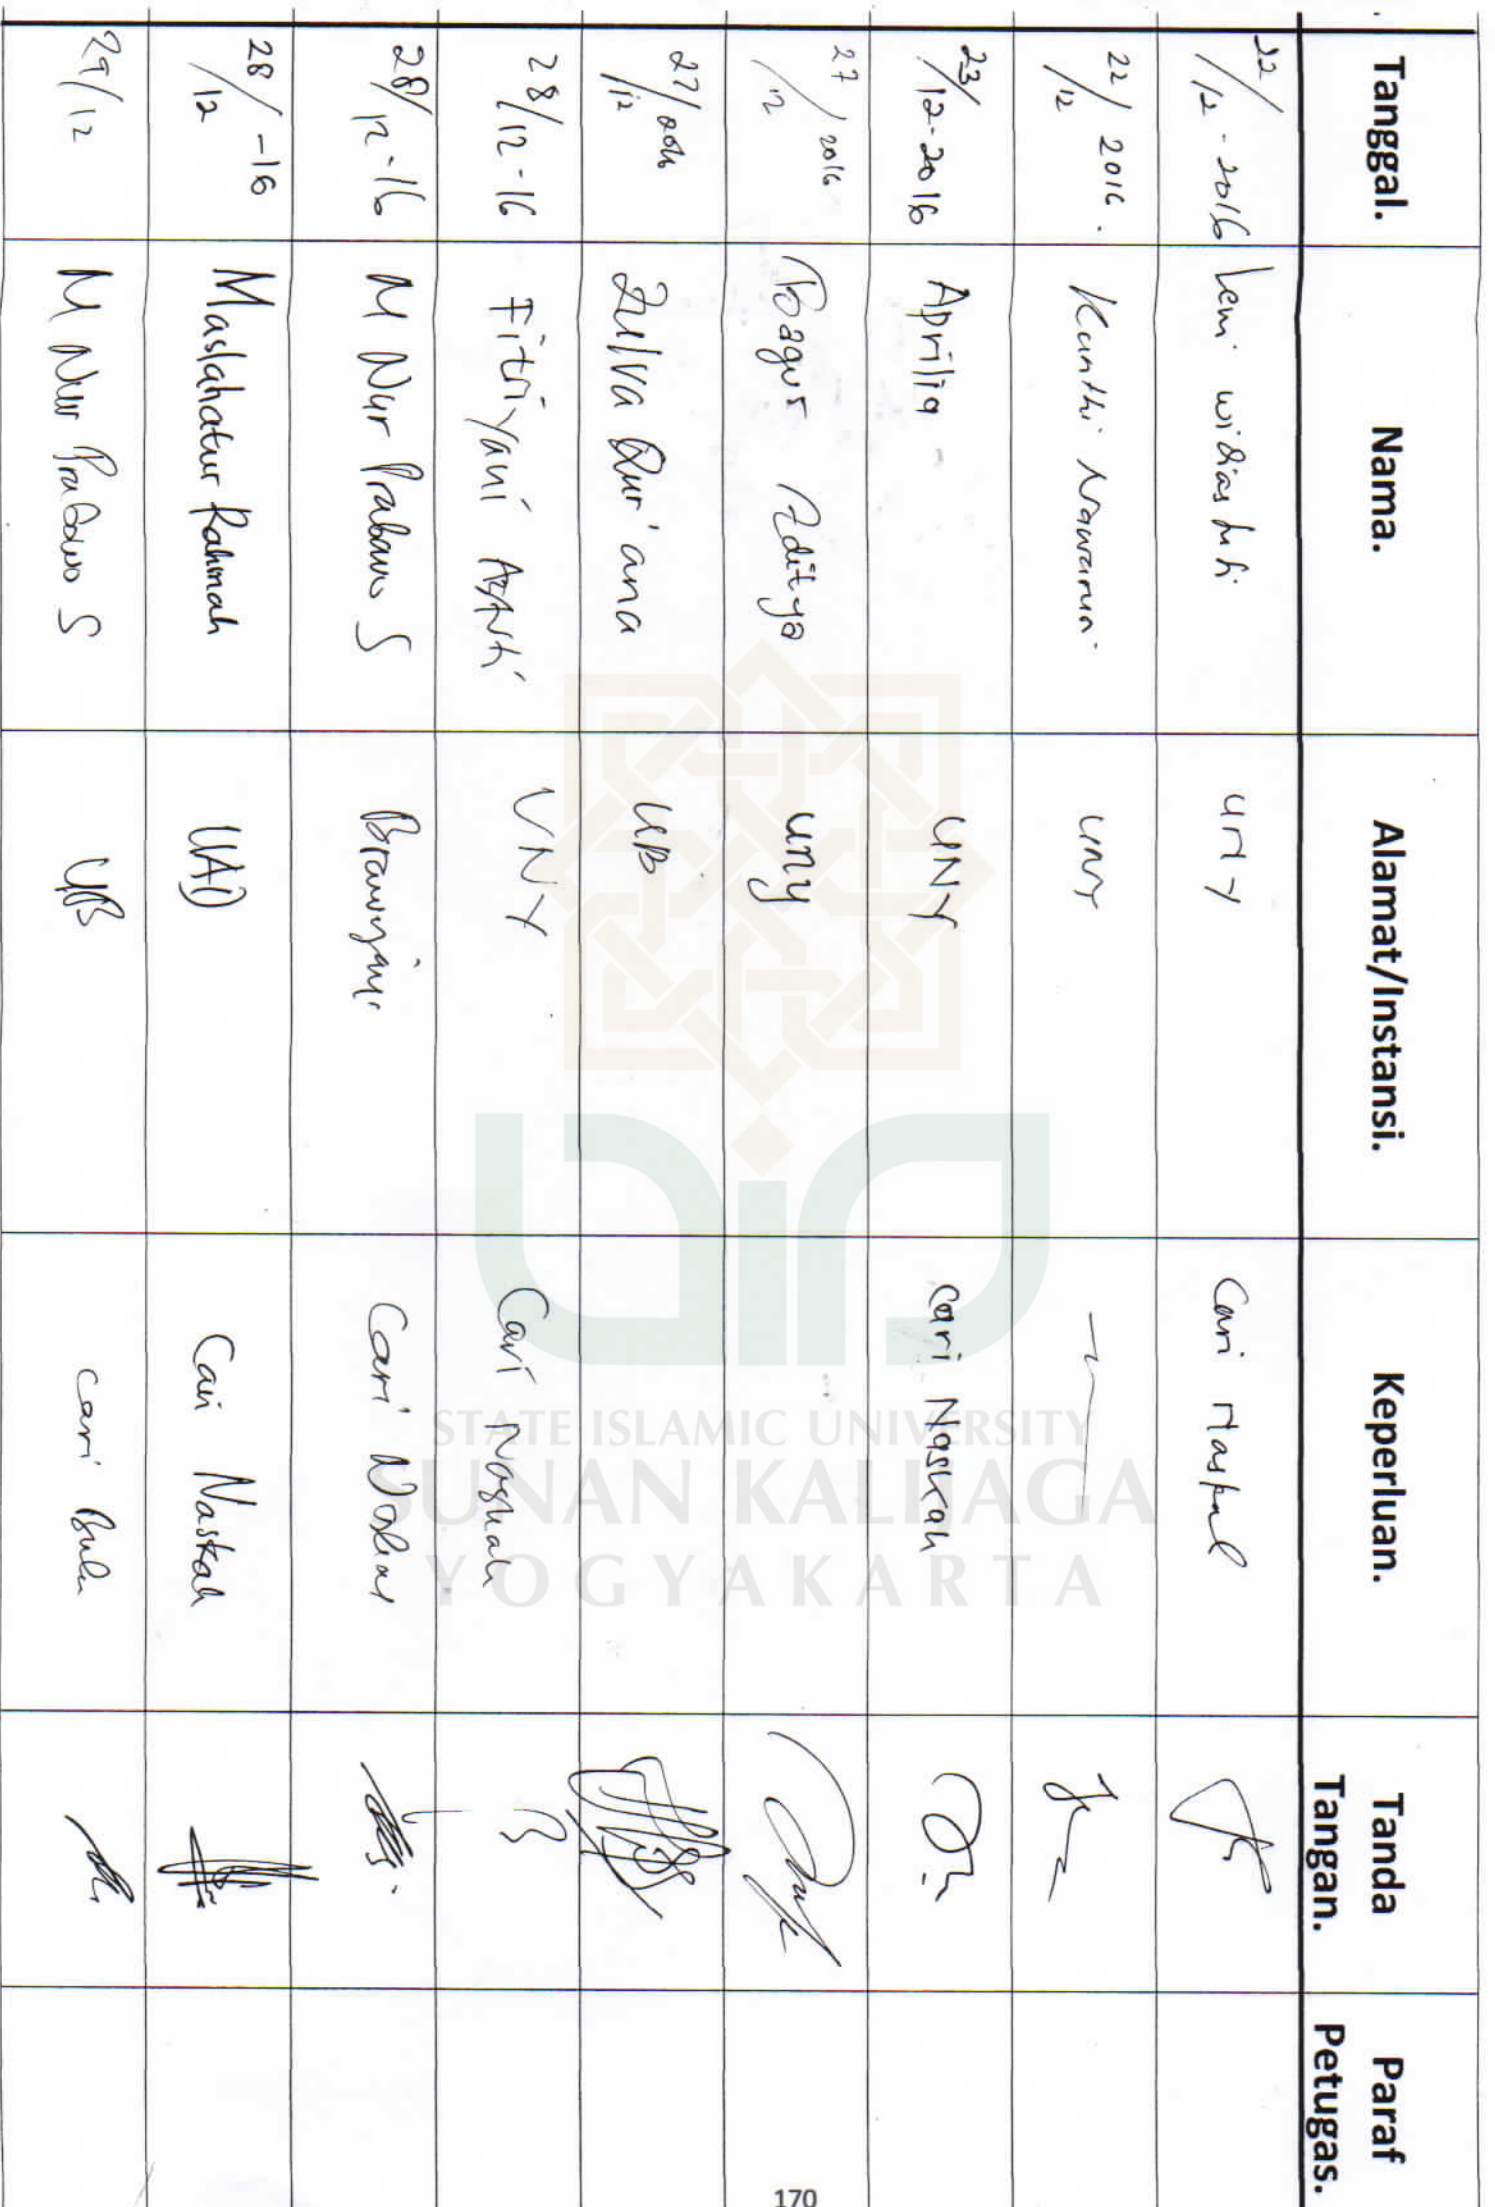 Tanggal. Nama. Alamat/Instansi. Keperluan. Tanda Tangan. Paraf Petugas.
22/12-2016 Leni widiastuti UNY Cari
22/12 2016. Kunthi UNY
23/12-2016 Aprilia UNY cari Naskah
27/12 2016 Bagus Aditya UNY
27/12 2016 Zulva Qur'ana UB
28/12-16 Fitriyani UNY Cari Naskah
28/12-16 M Nur Prabowo S Cari
28/12-16 Maslahatur Rahmah UAD Cari Naskah
29/12 M Nur Prabowo S UB cari Buku
STATE ISLAMIC UNIVERSITY
SUNAN KALIJAGA
YOGYAKARTA
170